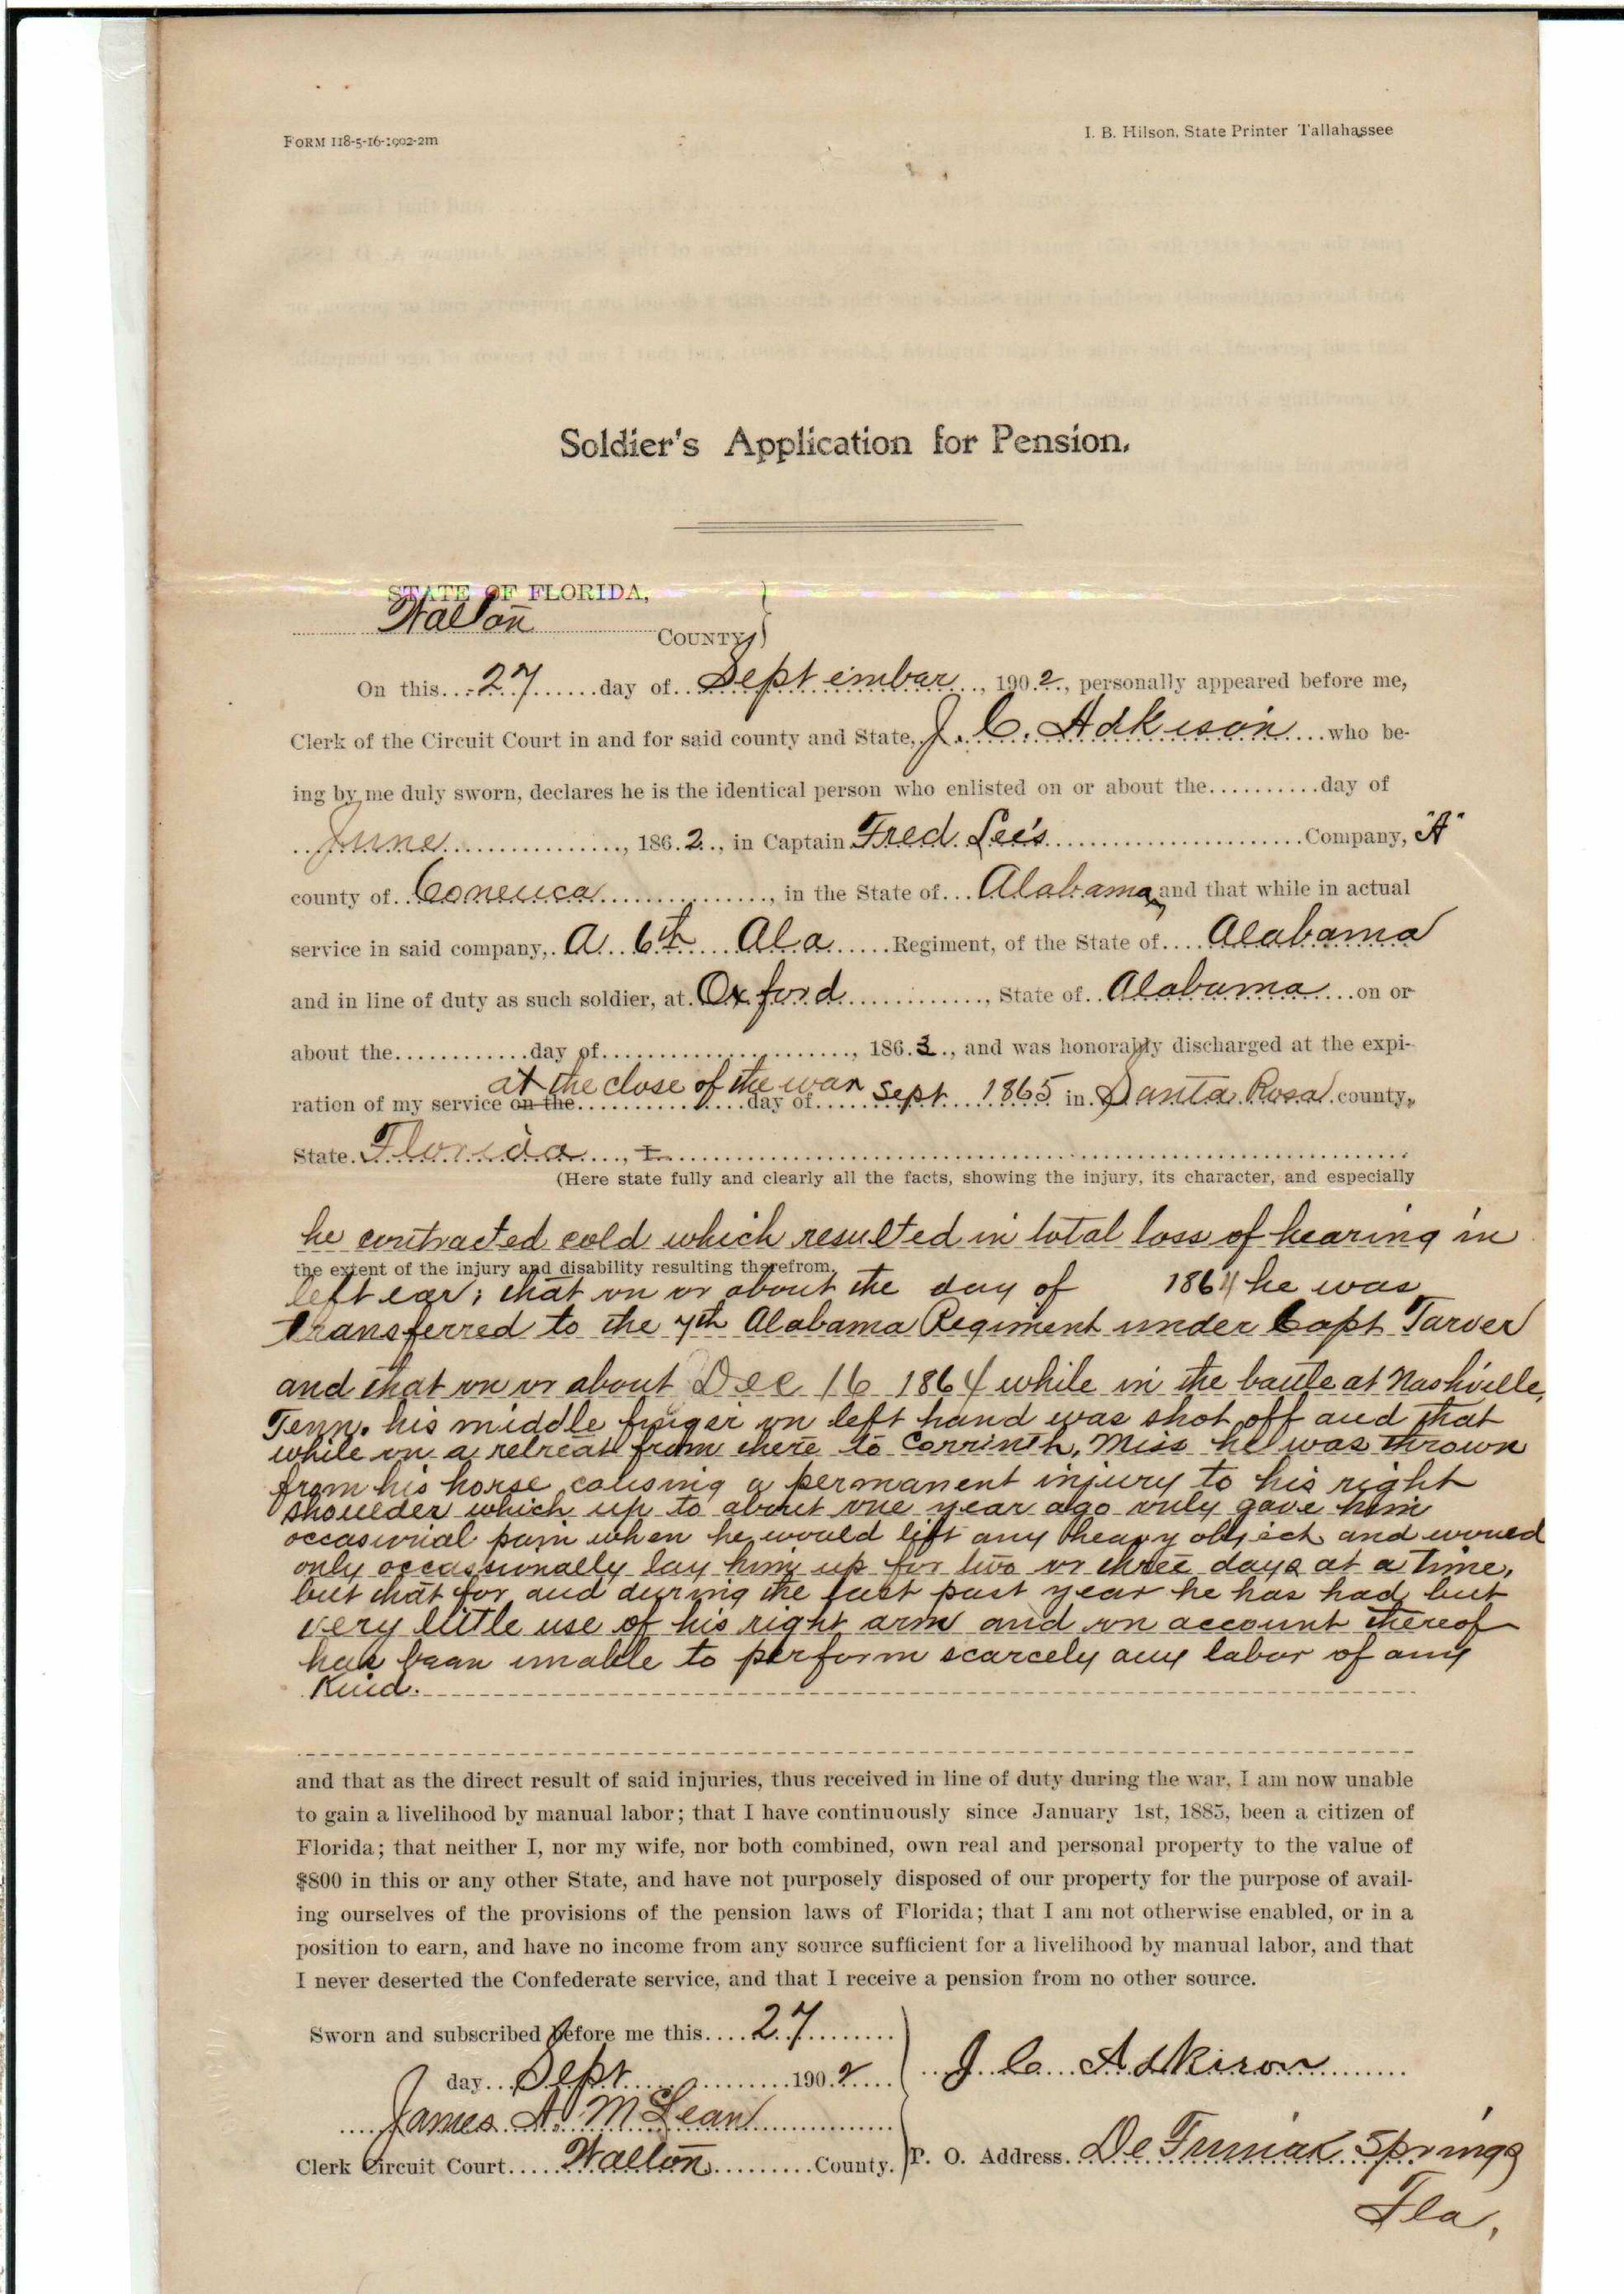 FORM 118-5-16-1902-2m
I. B. Hilson, State Printer Tallahassee
Soldier's Application for Pension.
STATE OF FLORIDA,
Walton COUNTY,
On this 27 day of September, 1902, personally appeared before me,
Clerk of the Circuit Court in and for said county and State, J. C. Adkison who be-
ing by me duly sworn, declares he is the identical person who enlisted on or about the..........day of
June, 1862, in Captain Fred Lee's Company, "A"
county of Conecuca, in the State of Alabama, and that while in actual
service in said company, A 6th Ala Regiment, of the State of Alabama
and in line of duty as such soldier, at Oxford, State of Alabama on or
about the............day of......................, 1863, and was honorably discharged at the expi-
at the close of the war
ration of my service on the day of Sept 1865 in Santa Rosa county,
State Florida, I
(Here state fully and clearly all the facts, showing the injury, its character, and especially
he contracted cold which resulted in total loss of hearing in
the extent of the injury and disability resulting therefrom.
left ear; that on or about the day of 1864 he was
transferred to the 7th Alabama Regiment under Capt Tarver
and that on or about Dec 16 1864 while in the battle at Nashville,
Tenn. his middle finger on left hand was shot off and that
while on a retreat from there to Corrinth, Miss he was thrown
from his horse causing a permanent injury to his right
shoulder which up to about one year ago only gave him
occasional pain when he would lift any heavy object and would
only occassionally lay him up for two or three days at a time,
but that for and during the last past year he has had but
very little use of his right arm and on account thereof
has been unable to perform scarcely any labor of any
Kind.
and that as the direct result of said injuries, thus received in line of duty during the war, I am now unable
to gain a livelihood by manual labor; that I have continuously since January 1st, 1885, been a citizen of
Florida; that neither I, nor my wife, nor both combined, own real and personal property to the value of
$800 in this or any other State, and have not purposely disposed of our property for the purpose of avail-
ing ourselves of the provisions of the pension laws of Florida; that I am not otherwise enabled, or in a
position to earn, and have no income from any source sufficient for a livelihood by manual labor, and that
I never deserted the Confederate service, and that I receive a pension from no other source.
Sworn and subscribed before me this 27
day Sept 1902
J C Adkison
James A. McLean
Clerk Circuit Court Walton County.
P. O. Address. De Funiak Springs
Fla,